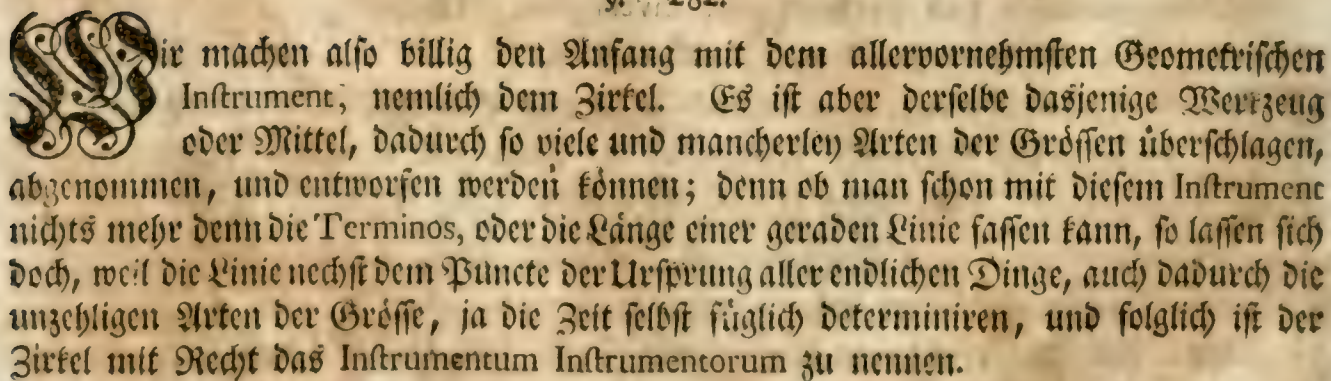 Wir machen also billig den Anfang mit dem allervornehmsten Geometrischen
Instrument, nemlich dem Zirkel. Es ist aber derselbe dasjenige Werkzeug
oder Mittel, dadurch so viele und mancherley Arten der Grössen überschlagen,
abgenommen, und entworfen werden können; denn ob man schon mit diesem Instrument
nichts mehr denn die Terminos, oder die Länge einer geraden Linie fassen kann, so lassen sich
doch, weil die Linie nechst dem Puncte der Ursprung aller endlichen Dinge, auch dadurch die
unzehligen Arten der Grösse, ja die Zeit selbst füglich determiniren, und folglich ist der
Zirkel mit Recht das Instrumentum Instrumentorum zu nennen.